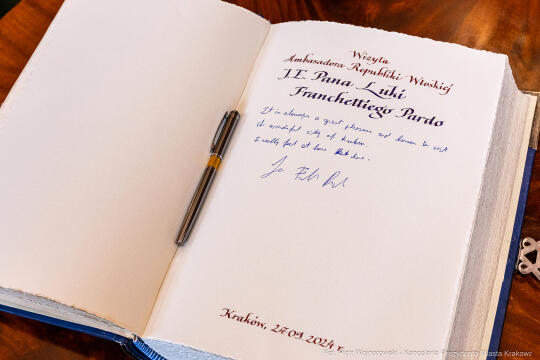 Wizyta
Ambasadora Republiki Włoskiej
J.E. Pana Luki
Franchettiego Pardo
It is always a great pleasure and honor to visit
the wonderful city of Krakow.
I really feel at home here.
Kraków, 27.09.2024 r.
Fot. Piotr Wojnarowski - Kancelaria Prezydenta Miasta Krakowa